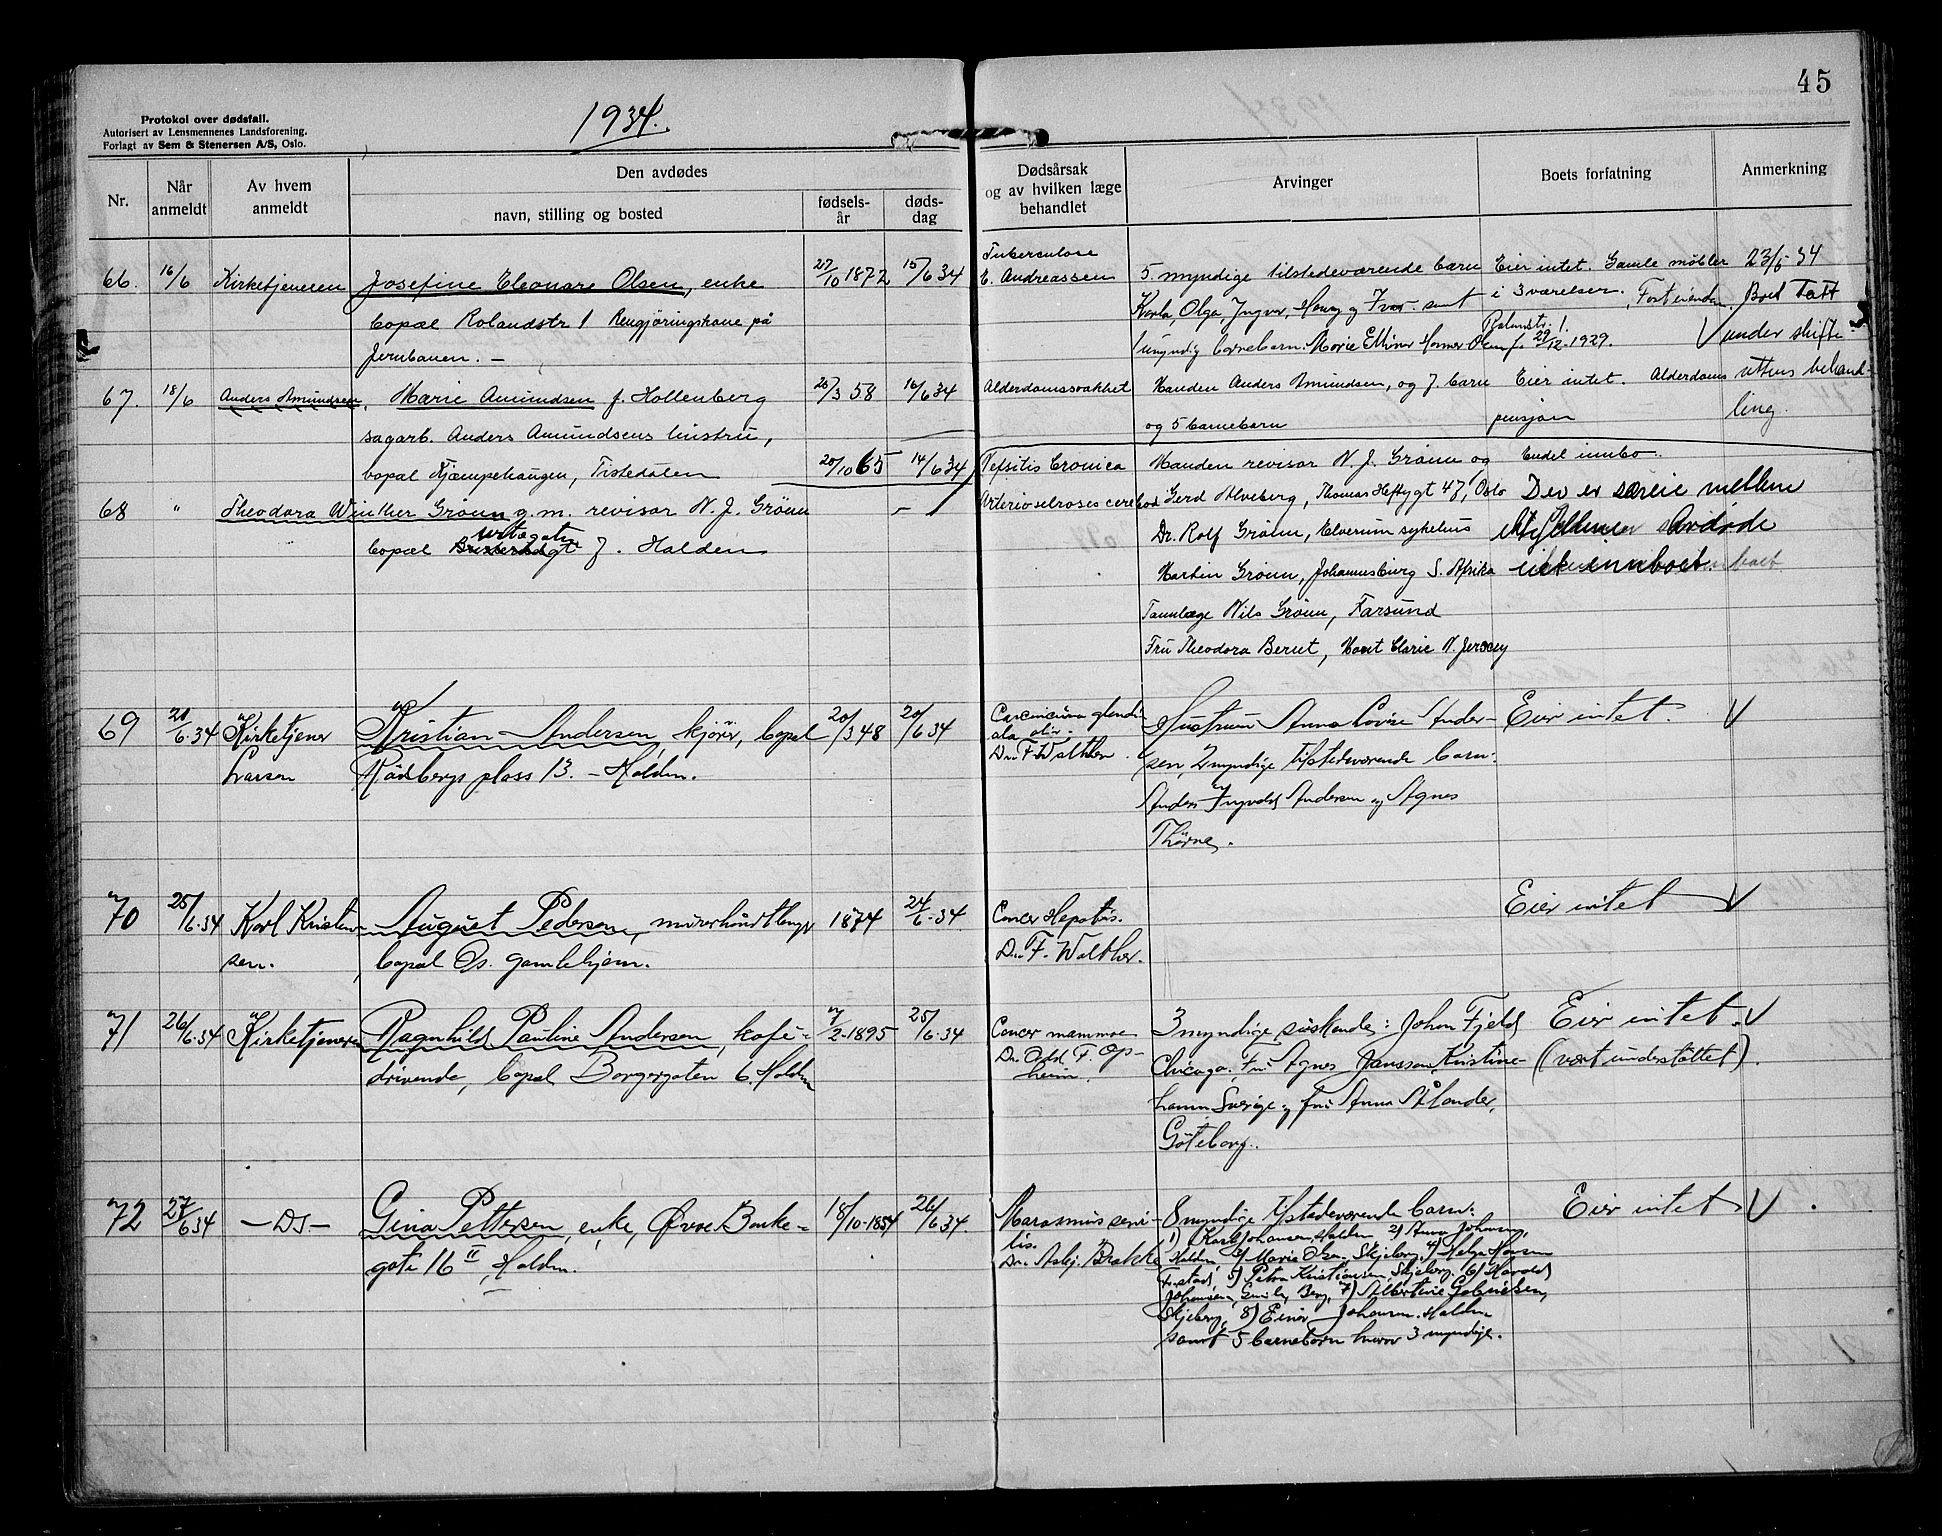 45
Protokol over dødsfall.
Autorisert av Lensmennenes Landsforening.
Forlagt av Sem & Stenersen A/S, Oslo.
1934.
Nr.
Når anmeldt
Av hvem anmeldt
Den avdødes
navn, stilling og bosted
fødsels-år
døds-dag
Dødsårsak og av hvilken læge behandlet
Arvinger
Boets forfatning
Anmerkning
66. 16/6 Kirketjeneren Josefine Eleonore Olsen, enke 27/10 1872 15/6 34
bopæl Rolandstr 1 Rengjøringskone på
Jernbanen. —
Tuberculose
E. Andreassen
5 myndige tilstedeværende barn
Karla, Olga, Ingvar, Henry og Ivar samt
1 umyndig barnebarn Marie f. 29/12-1929.
Rolandstr. 1.
Eier intet. Gamle møbler
i 3 værelser.
23/6 34
Boet tatt
under skifte-
rettens behand-
ling.
67. 18/6 Anders Amundsen, Marie Amundsen f. Hollenberg 25/3 58 16/6 34
sagarb. Anders Amundsens hustru,
bopæl Kjæmpehaugen, Tistedalen
Alderdomssvakhet
Manden Anders Amundsen, og 7 barn
og 5 barnebarn
Eier intet. Alderdoms
pensjon
68 " Theodora Winther Grønn g.m. revisor N. J. Grønn 20/10 65 14/6 34
bopæl 7. Halden
Manden revisor N. J. Grønn og
Gerd Alveberg, Thomas Heftygt 47, Oslo
Dr. Rolf Grønn, Elverum sykehus
Martin Grønn, Johannesburg S. Afrika
Tannlæge Nils Grønn, Farsund
Fru Theodora Berut, Mont Clarie N. Jersey
Endel innbo.
69 21/6.34 Kirketjener Kristian Andersen, kjører, bopæl 20/3 48 20/6 34
Larsen Rødsbergs plass 13. – Halden.
Dr. F. Walther.
Hustruen Anna Lovise Ander-
sen, 2 myndige tilstedeværende barn:
Anders Ingvald Andersen og Agnes
Thörne.
Eier intet. V
70 25/6.34 Karl Kristen- August Pedersen, murerhåndtlanger 1874 24/6.34.
sen. bopæl Os gamlehjem.
Cancer Hepatis.
Dr. F. Walther.
Eier intet V
71 26/6.34 Kirketjeneren Ragnhild Pauline Andersen, kafe- 7/2-1895 25/6.34
drivende, bopæl Borgergaten 6. Halden
Cancer mammae
Dr. Odd F. Op-
heim.
3 myndige søskende: Johan Fjeld
Chicago. Fru Agnes Jansson, Kristine-
hamn, Sverige og fru Anna Ålander,
Göteborg.
Eier intet. V
(vært understøttet).
72 27/6 34 — Ds — Gina Pettersen, enke, Øvre Banke- 18/10-1854 26/6 34.
gate 16 II, Halden.
Marasmus seni-
lis.
Dr. Asbj. Brække
8 myndige tilstedeværende barn:
1) Karl Johansen, Halden 2) Anna Johansen,
Halden, 3) Marie Olsen, Skjeberg, 4) Helga Hansen
Fr.stad, 5) Petra Kristiansen, Skjeberg, 6) Harald
Johansen, Berg, 7) Albertine Gabrielsen,
Skjeberg, 8) Einar Johansen, Halden
samt 5 barnebarn hvorav 3 myndige.
Eier intet V